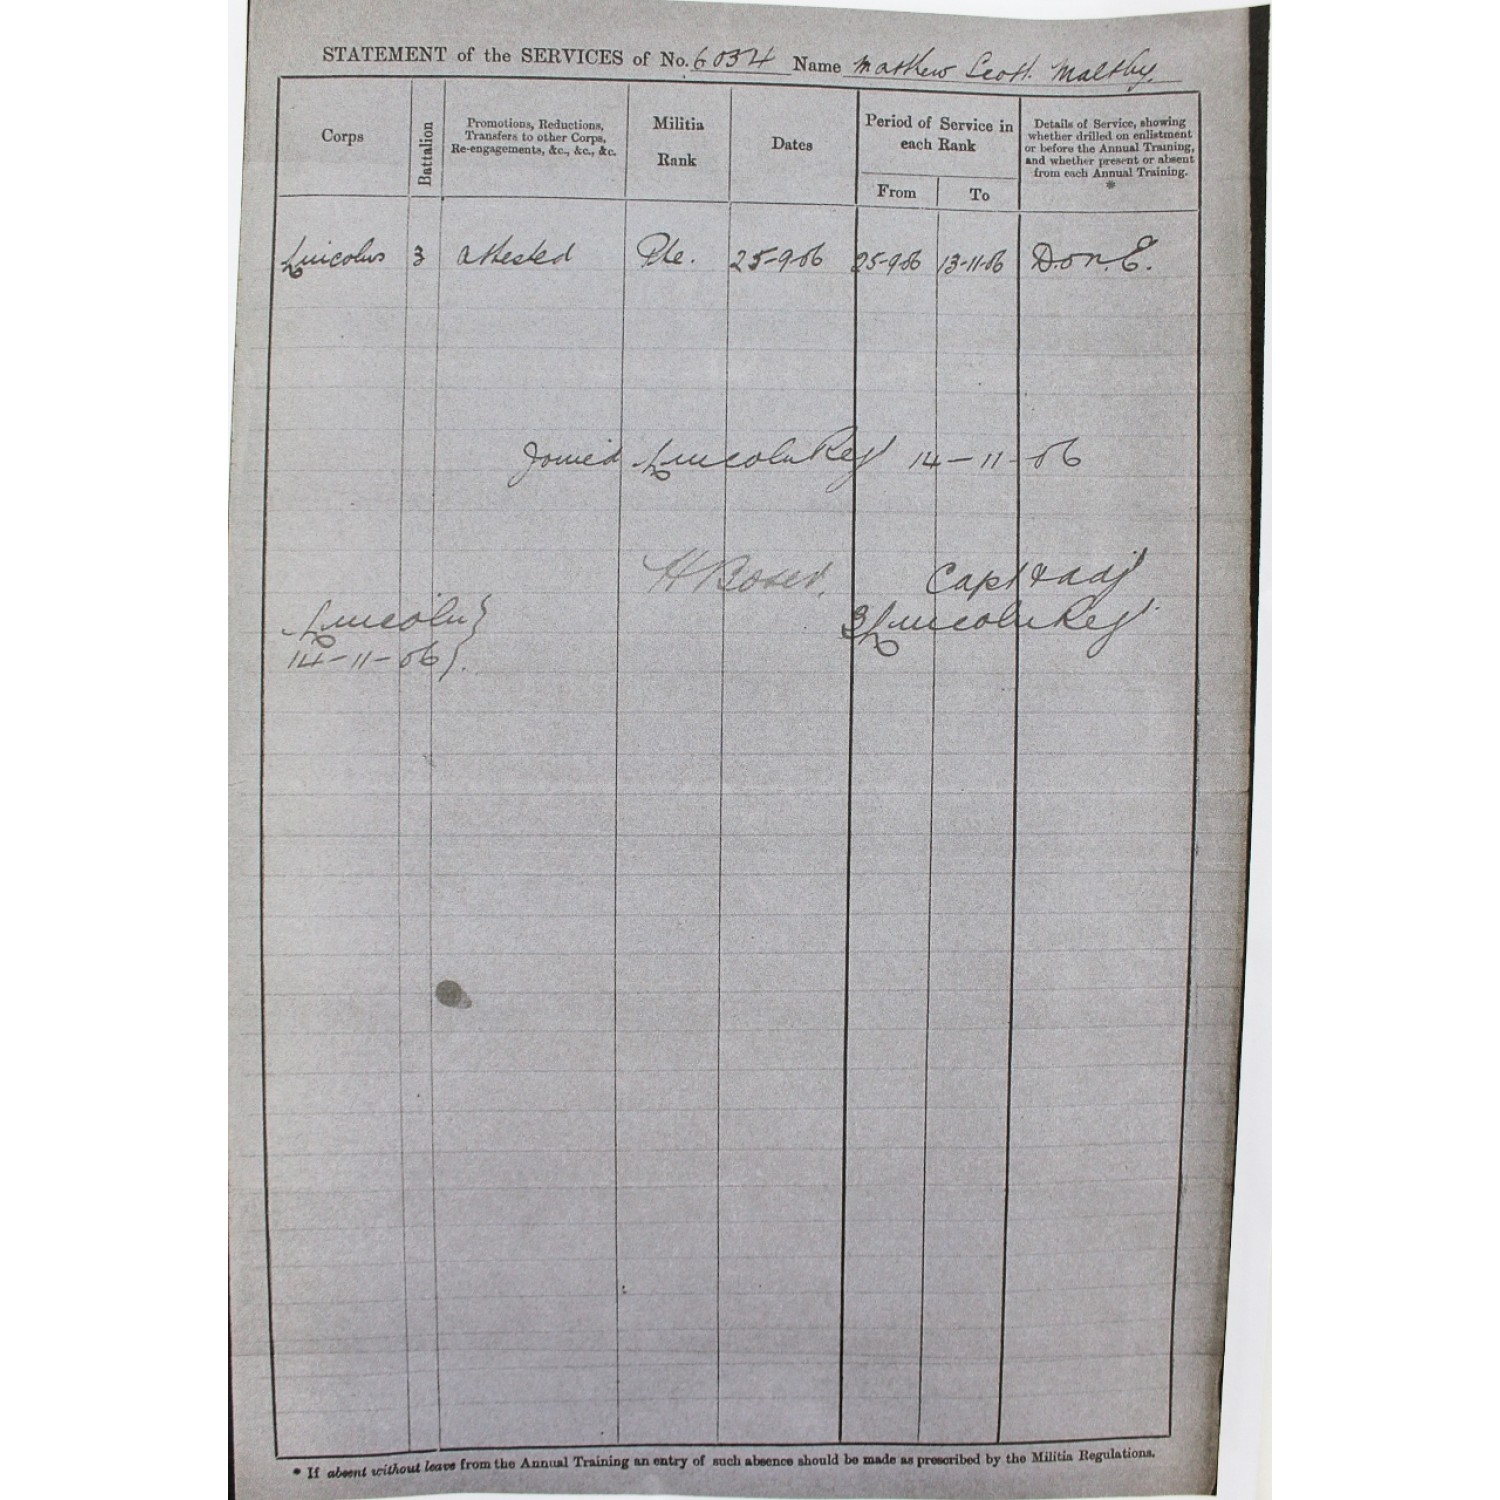 STATEMENT of the SERVICES of No. 6034 Name Mathew Scott Maltby.
Corps
Battalion
Promotions, Reductions,
Transfers to other Corps,
Re-engagements, &c., &c., &c.
Militia
Rank
Dates
Period of Service in
each Rank
From To
Details of Service, showing
whether drilled on enlistment
or before the Annual Training,
and whether present or absent
from each Annual Training.
*
Lincolns 3 attested Pte. 25-9-06 25-9-06 13-11-06 D.on.E.
Joined Lincoln Reg 14-11-06
H Capt & adj
3 Lincoln Reg
Lincoln }
14-11-06 }.
* If absent without leave from the Annual Training an entry of such absence should be made as prescribed by the Militia Regulations.